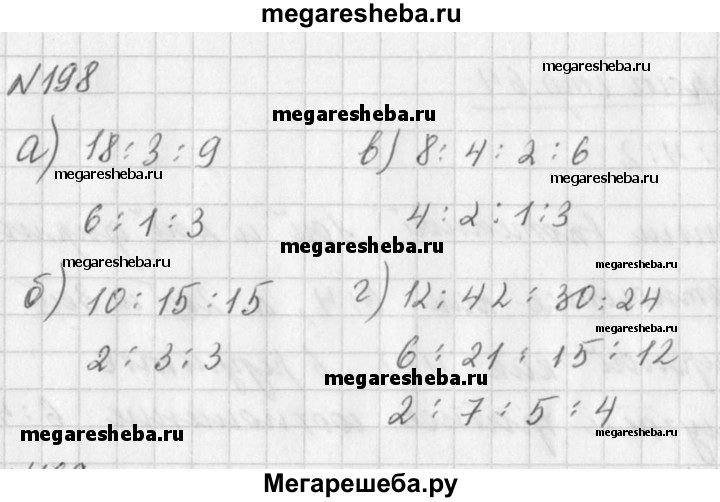 megaresheba.ru
№198
megaresheba.ru
megaresheba.ru
а) 18 : 3 : 9
в) 8 : 4 : 2 : 6
megaresheba.ru
megaresheba.ru
6 : 1 : 3
4 : 2 : 1 : 3
megaresheba.ru
megaresheba.ru
megaresheba.ru
б) 10 : 15 : 15
г) 12 : 42 : 30 : 24
megaresheba.ru
2 : 3 : 3
6 : 21 : 15 : 12
megaresheba.ru
2 : 7 : 5 : 4
megaresheba.ru
megaresheba.ru
Мегарешеба.ру